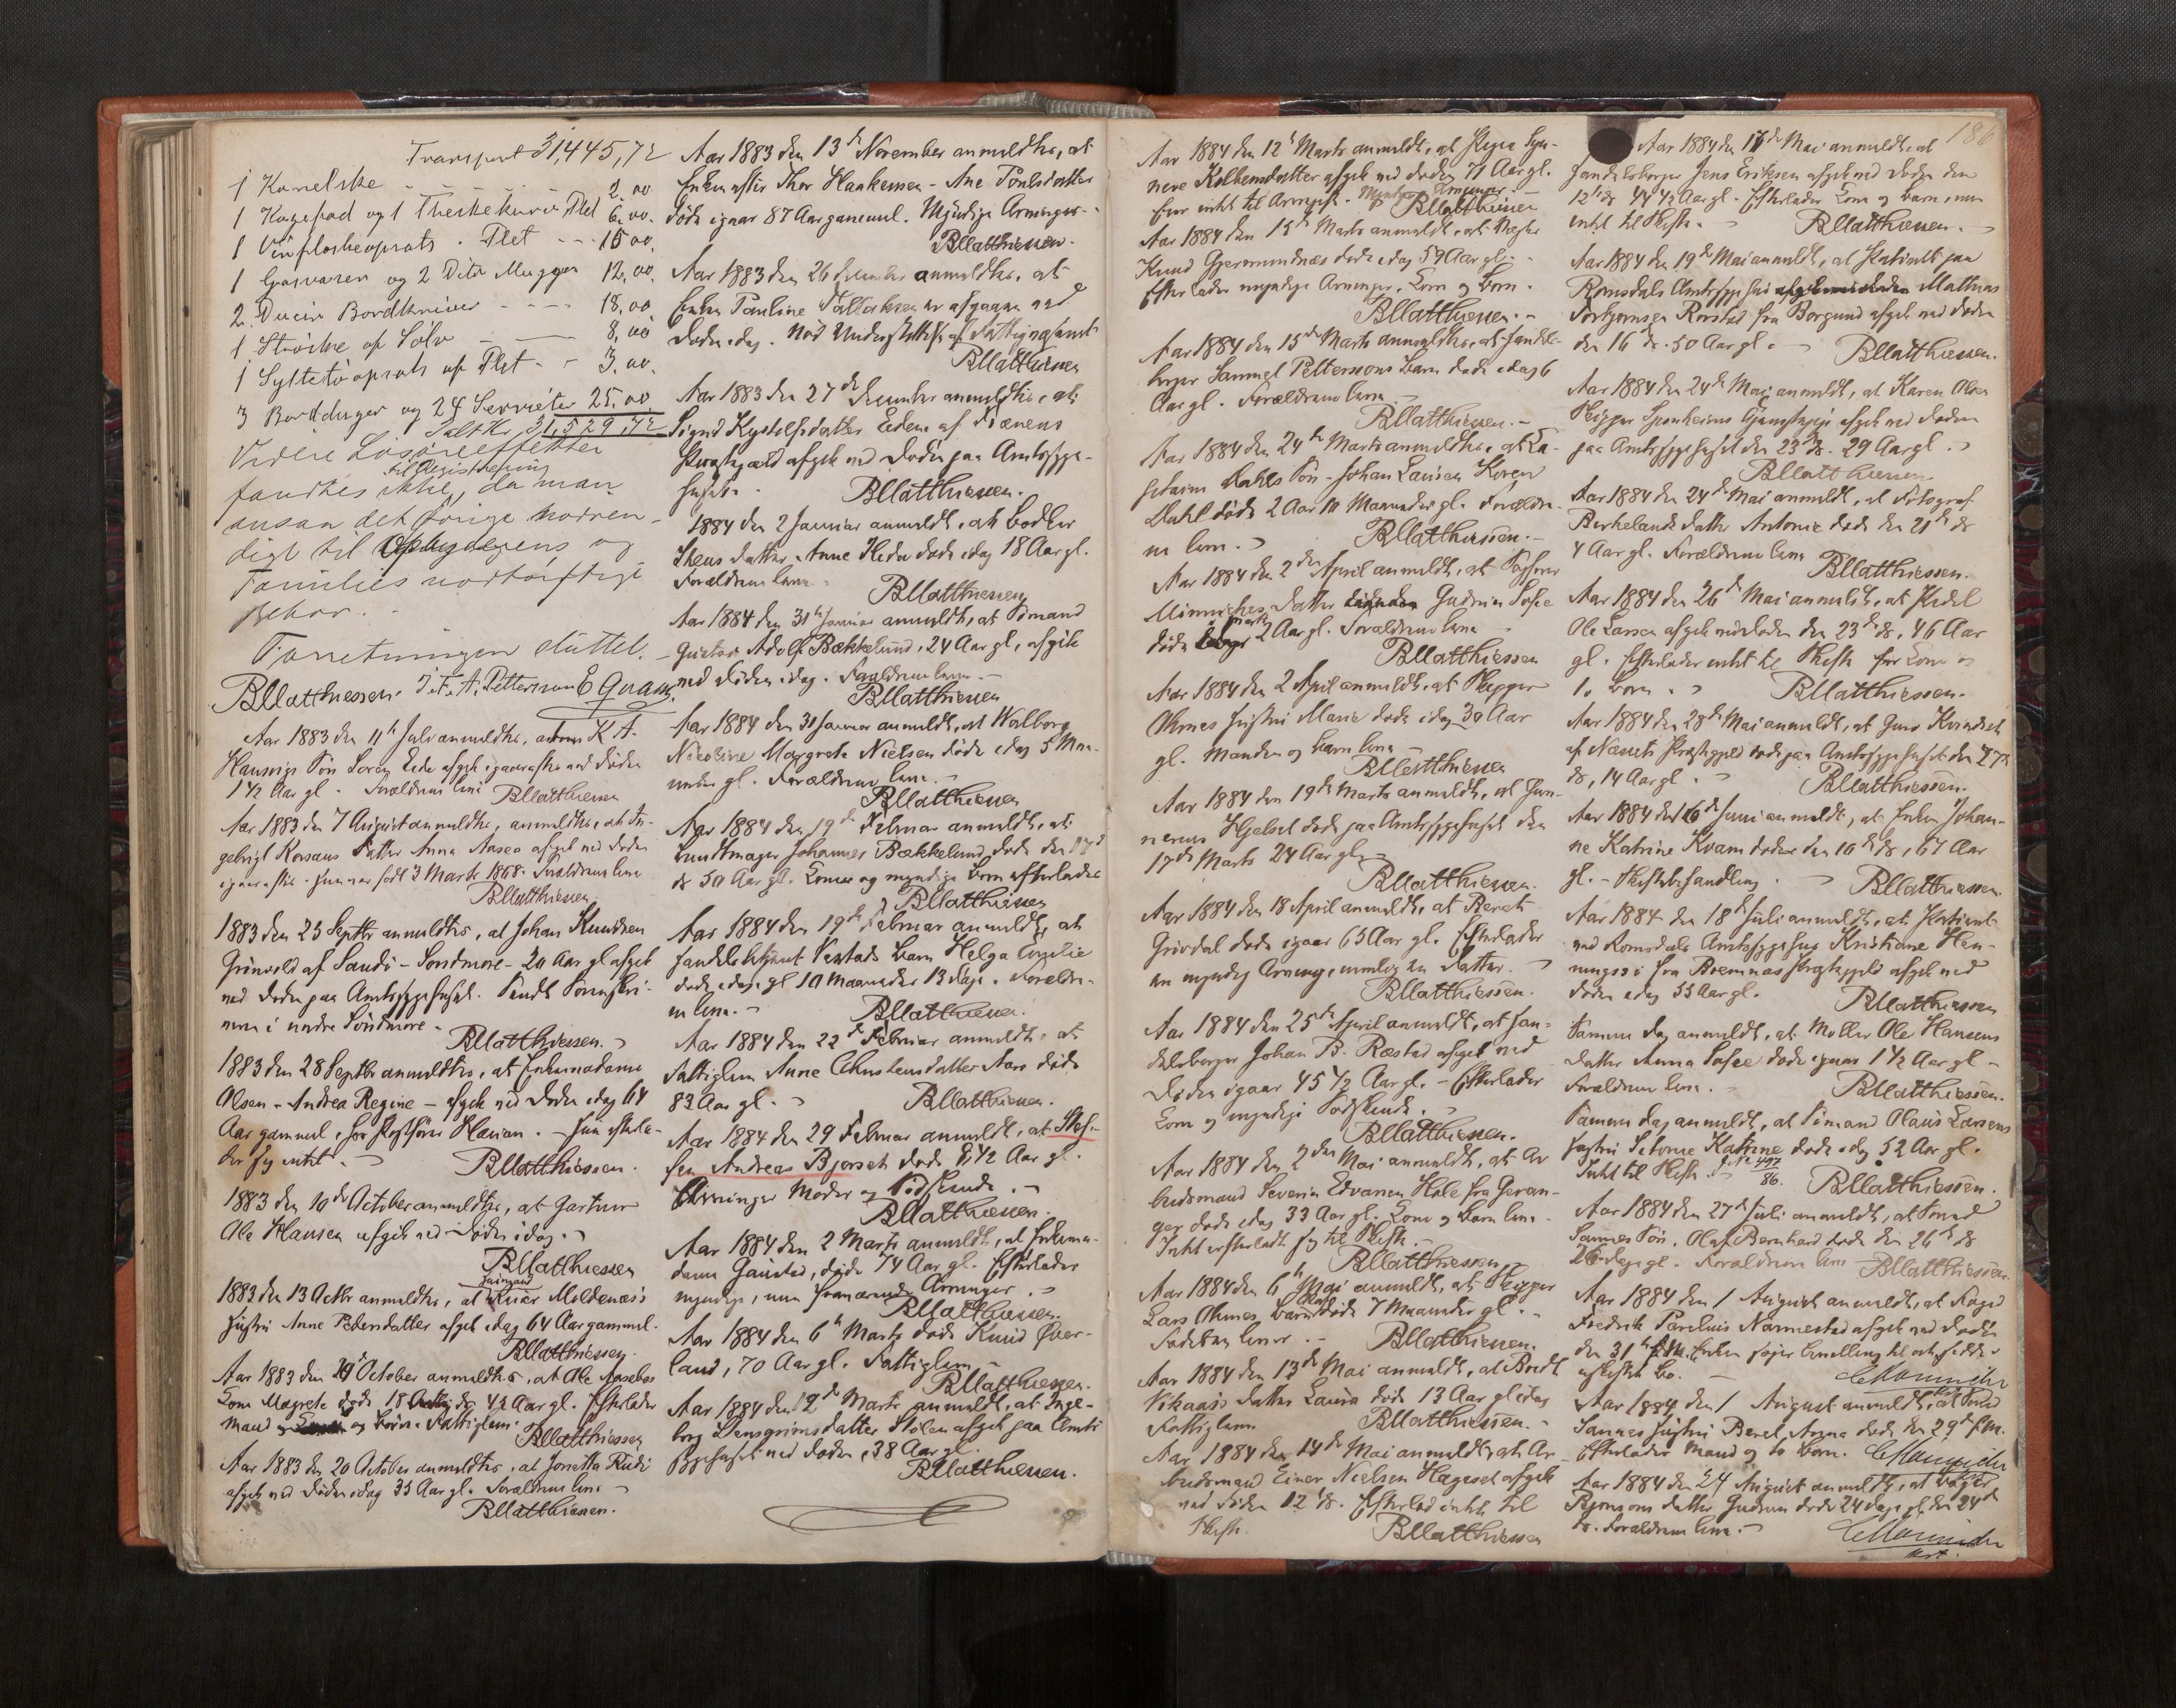 Transport 31,445,72
1 Kareelske 2.00
1 Kagefad og 1 Theskekurv Plet 6.00.
1 Vinflaskeopsats. Plet 15.00.
1 og 2 Dito Mugger 12.00.
2 Dusin Bordkniver 18,00
1 af Sølv 8,00
1 Syltetöiopsats af Plet 3.00.
3 Bordduger og 24 Servietter 25.00
Talt Kr. 31,529,72
Videre Lösöreeffekter
til Registrering
fandtes ikke, da man
ansaa det övrige nödven-
digt til Opbyderens og
Families nödtörftige
Behov.
Forretningen sluttet.
BMatthiessen. J. A. Petterson E Qvam
Aar 1883 den 11te Juli anmeldtes, K A.
Hansvigs Sön Soren Eide afgik igaaraftes ved Döden
1 1/2 Aar gl. Forældrene leve BMatthiessen
Aar 1883 den 7 August anmeldtes, anmeldtes, at In-
gebrigt Korsaus Datter Anna Aasea afgik ved Döden
igaaraftes. Hun var födt 3 Marts 1868. Forældrene leve
BMatthiessen
1883 den 25 Septbr anmeldtes, at Johan Knudsen
Grönvold af Sandö - Söndmöre - 20 Aar gl afgik
ved Döden paa Amtssygehuset. Sendt Sorenskri-
veren i søndre Söndmöre.
BMatthiessen.
1883 den 28 Septbr anmeldtes, at Enkemadame
Olsen - Andrea Regine - afgik ved Döden idag 64
Aar gammel, hos Postförer Klavan. - Hun efterla-
der sig intet. BMatthiessen.
1883 den 10de October anmeldtes, at Gartner
Ole Hansen afgik ved Döden idag.
BMatthiessen
1883 den 13 Octbr anmeldtes, at Moldenæs's
Hustru Anne Pedersdatter afgik idag 64 Aar gammel.
BMatthiessen.
Aar 1883 den 19de October anmeldtes, at Ole Aasebøs
Kone Magrete döde 18 ds 42 Aar gl. Efterlader
Mand og börn. Fattiglem.
BMatthiessen
Aar 1883 den 20 October anmeldtes, at Jonetta Rudi
afgik ved Döden idag 35 Aar gl. Forældrene leve
BMatthiessen.
Aar 1883 den 13de November anmeldtes, at
Enken efter Thor Haakensen - Ane Poulsdatter
döde igaar 87 Aar gammel. Myndige Arvinger.
BMatthiessen.
Aar 1883 den 26 December anmeldtes, at
Enken Pauline Tollaksen er afgaaet ved
Döden idag. Nöd Understøttelse af Fattigvæsenet
BMatthiessen
Aar 1883 den 27de December anmeldtes, at
Sigrid Kystolfsdatter Eidem af Frænens
Præstegjæld afgik ved Döden paa Amtssyge-
huset. BMatthiessen.
1884 den 2 Januar anmeldt, at Bödker
Datter Anne Heda döde idag 18 Aar gl.
Forældrene leve
BMatthiessen
Aar 1884 den 31te Januar anmeldt, at Sömand
Gustav Adolf Bækkelund, 24 Aar gl, afgik
ved Döden idag. Forældrene leve.
BMatthiessen
Aar 1884 den 31 Januar anmeldt, at Walborg
Nicoline Margrete Nielsen döde idag 5 Maa-
neder gl. Forældrene leve.
BMatthiessen
Aar 1884 den 19de Februar anmeldt, at
Buntmager Johannes Bækkelund döde den 17de
ds 50 Aar gl. Kone og myndige Börn efterlades
BMatthiessen
Aar 1884 den 19de Februar anmeldt, at
Handelsbetjent Vestads Barn Helga Emilie
döde idag, gl 10 Maaneder 13 Dage. Foreldre-
ne leve. BMatthiessen.
Aar 1884 den 22de Februar anmeldt, at
Fattiglem Anne Christensdatter Aarö döde
83 Aar gl. BMatthiessen.
Aar 1884 den 29 Februar anmeldt, at
Andreas Bjorset döde 8 1/2 Aar gl.
Arvinger Moder og Sødskende.
BMatthiessen.
Aar 1884 den 2 Marts anmeldt, at Enkema-
dame Gaustad, döde 74 Aar gl. Efterlader
myndige, men fraværende Arvinger.
BMatthiessen.
Aar 1884 den 6te Marts döde Knud Øver-
land, 70 Aar gl. Fattiglem.
BMatthiessen.
Aar 1884 den 12de Marts anmeldt, at Inge-
borg Stensgrimsdatter Stolen afgik paa Amts
sygehuset ved Döden, 38 Aar gl.
BMatthiessen.
186
Aar 1884 den 12te Marts anmeldt, at Pige Syn-
neve Kolbensdatter afgik ved Döden 71 Aar gl.
Evne intet til Arveskift. Myndige Arvinger.
BMatthiessen
Aar 1884 den 15de Marts anmeldt, at
Knud Gjermundnæs döde idag 59 Aar gl.
Efterlader myndige Arvinger, Kone og Börn.
BMatthiessen.
Aar 1884 den 15de Marts anmeldtes, at Handels-
borger Samuel Pettersons Barn döde idag 6
Aar gl. Forældrene leve
BMatthiessen.
Aar 1884 den 24de Marts anmeldtes, at
Dahls Sön - Johan Lausen Koren
Dahl döde 2 Aar 10 Maaneder gl. Forældre-
ne leve. BMatthiessen.
Aar 1884 den 2den April anmeldt, at
Datter Gudrun Sofie
döde 2 Aar gl. Forældrene leve
BMatthiessen
Aar 1884 den 2 April anmeldt, at Skipper
Ohrnes Hustru Marie döde idag 30 Aar
gl. Manden og Barn leve
BMatthiessen
Aar 1884 den 19de Marts anmeldt, at Gun-
nerius Hjelset döde paa Amtssygehuset den
17de Marts 24 Aar gl.
BMatthiessen.
Aar 1884 den 18 April anmeldt, at Beret
Grövdal döde igaar 65 Aar gl. Efterlader
en myndig Arving nemlig en Datter.
BMatthiessen.
Aar 1884 den 25de April anmeldt, at Han-
delsborger Johan B. Ræstad afgik ved
Döden igaar 45 1/2 Aar gl. - Efterlader
Kone og myndige Sødskende.
BMatthiessen.
Aar 1884 den 2den Mai anmeldt, at Ar
beidsmand Severin Edvarsen Hole fra Geiran-
ger döde idag 33 Aar gl. Kone og Barn leve.
Intet efterladt sig til Skifte.
BMatthiessen
Aar 1884 den 6te Mai anmeldt, at Skipper
Lars Ohrnes Barn döde 7 Maaneder gl.
Faderen lever. BMatthiessen.
Aar 1884 den 13de Mai anmeldt, at Berdt
Vikaas's Datter Laura döde 13 Aar gl idag
Fattiglem BMatthiessen.
Aar 1884 den 14de Mai anmeldt, at Ar
beidsmand Einar Nielsen Hageset afgik
ved Döden 12 ds. Efterlod intet til
Skifte. BMatthiessen
Aar 1884 den 17de Mai anmeldt, at
Handelsborger Jens Eriksen afgik ved Döden den
12te ds 44 1/2 Aar gl. Efterlader Kone og Barn, men
intet til Skifte. BMatthiessen.
Aar 1884 den 19de Mai anmeldt, at Patient paa
Romsdals Amtssygehus Mathias
Torbjørnsen Rorstad fra Borgund afgik ved Döden
den 16 ds. 50 Aar gl. BMatthiessen.
Aar 1884 den 24de Mai anmeldt, at Karen Olsen
Skipper Sponheims Tjenestepige afgik ved Döden
paa Amtssygehuset den 23de ds. 29 Aar gl.
BMatthiessen
Aar 1884 den 24de Mai anmeldt, at Fotograf
Birkelands Datter Antonie döde den 21de ds
4 Aar gl. Forældrene leve
BMatthiessen.
Aar 1884 den 26de Mai anmeldt, at
Ole Larsen afgik ved Döden den 23de ds, 46 Aar
gl. Efterlader intet til Skifte for Kone og
10 börn. BMatthiessen.
Aar 1884 den 28de Mai anmeldt, at Guro Kvindset
af Næsets Præstegjæld döde paa Amtssygehuset den 27de
ds, 14 Aar gl. BMatthiessen.
Aar 1884 den 16de Juni anmeldt, at Enken Johan-
ne Katrine Kvam döde den 10de ds, 67 Aar
gl. - Skiftebehandling. BMatthiessen.
Aar 1884 den 18de Juli anmeldt, at Patient
ved Romsdals Amtssygehus Kristiane Hen-
ningsö fra Bremnæs Præstegjeld afgik ved
Döden idag 33 Aar gl. BMatthiessen
Samme Dag anmeldt, at Möller Ole Hansens
Datter Anna Sofie döde igaar 1 1/2 Aar gl -
Forældrene leve. BMatthiessen.
Samme Dag anmeldt, at Sömand Olaus Larsens
Hustru Katrine döde idag 52 Aar gl.
Intet til Skifte. J. No 497/86. BMatthiessen.
Aar 1884 den 27de Juli anmeldt, at
Sannes Sön, Olaf Bernhard döde den 26de ds
Dage gl. Forældrene leve BMatthiessen.
Aar 1884 den 1 August anmeldt, at Foged
Fredrik Parelius Nærmestad afgik ved Döden
den 31te f.M.
uskiftet Bo.
Aar 1884 den 1 August anmeldt, at
Sannes Hustru Beret Anna döde den 29de f.M.
Efterlader Mand og to börn.
Aar 1884 den 24 August anmeldt, at Bager
Datter Gudrun döde 24 Dage gl den 24de
ds. Forældrene leve.